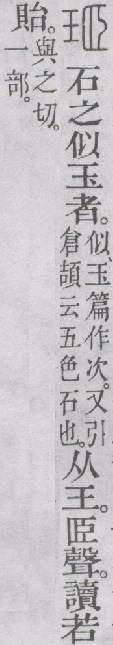 石之似玉者。似、玉篇作次。又引倉頡云五色石也。从王。𦣞聲。讀若
貽。與之切。一部。